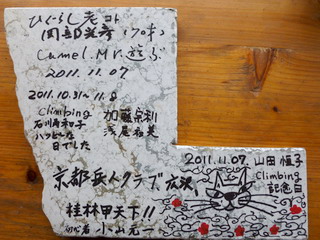 ひぐらし老コト
岡部光彦(70才)
Camel.Mr.遊ぶ
2011.11.07
2011.10.31～11.8
Climbing
石川寿和子
ハッピーな
日でした
加藤泉利
浅尾裕美
京都岳人クラブ 広沢
桂林甲天下!!
初心者 小山元一
2011.11.07. 山田恒子
Climbing
記念日